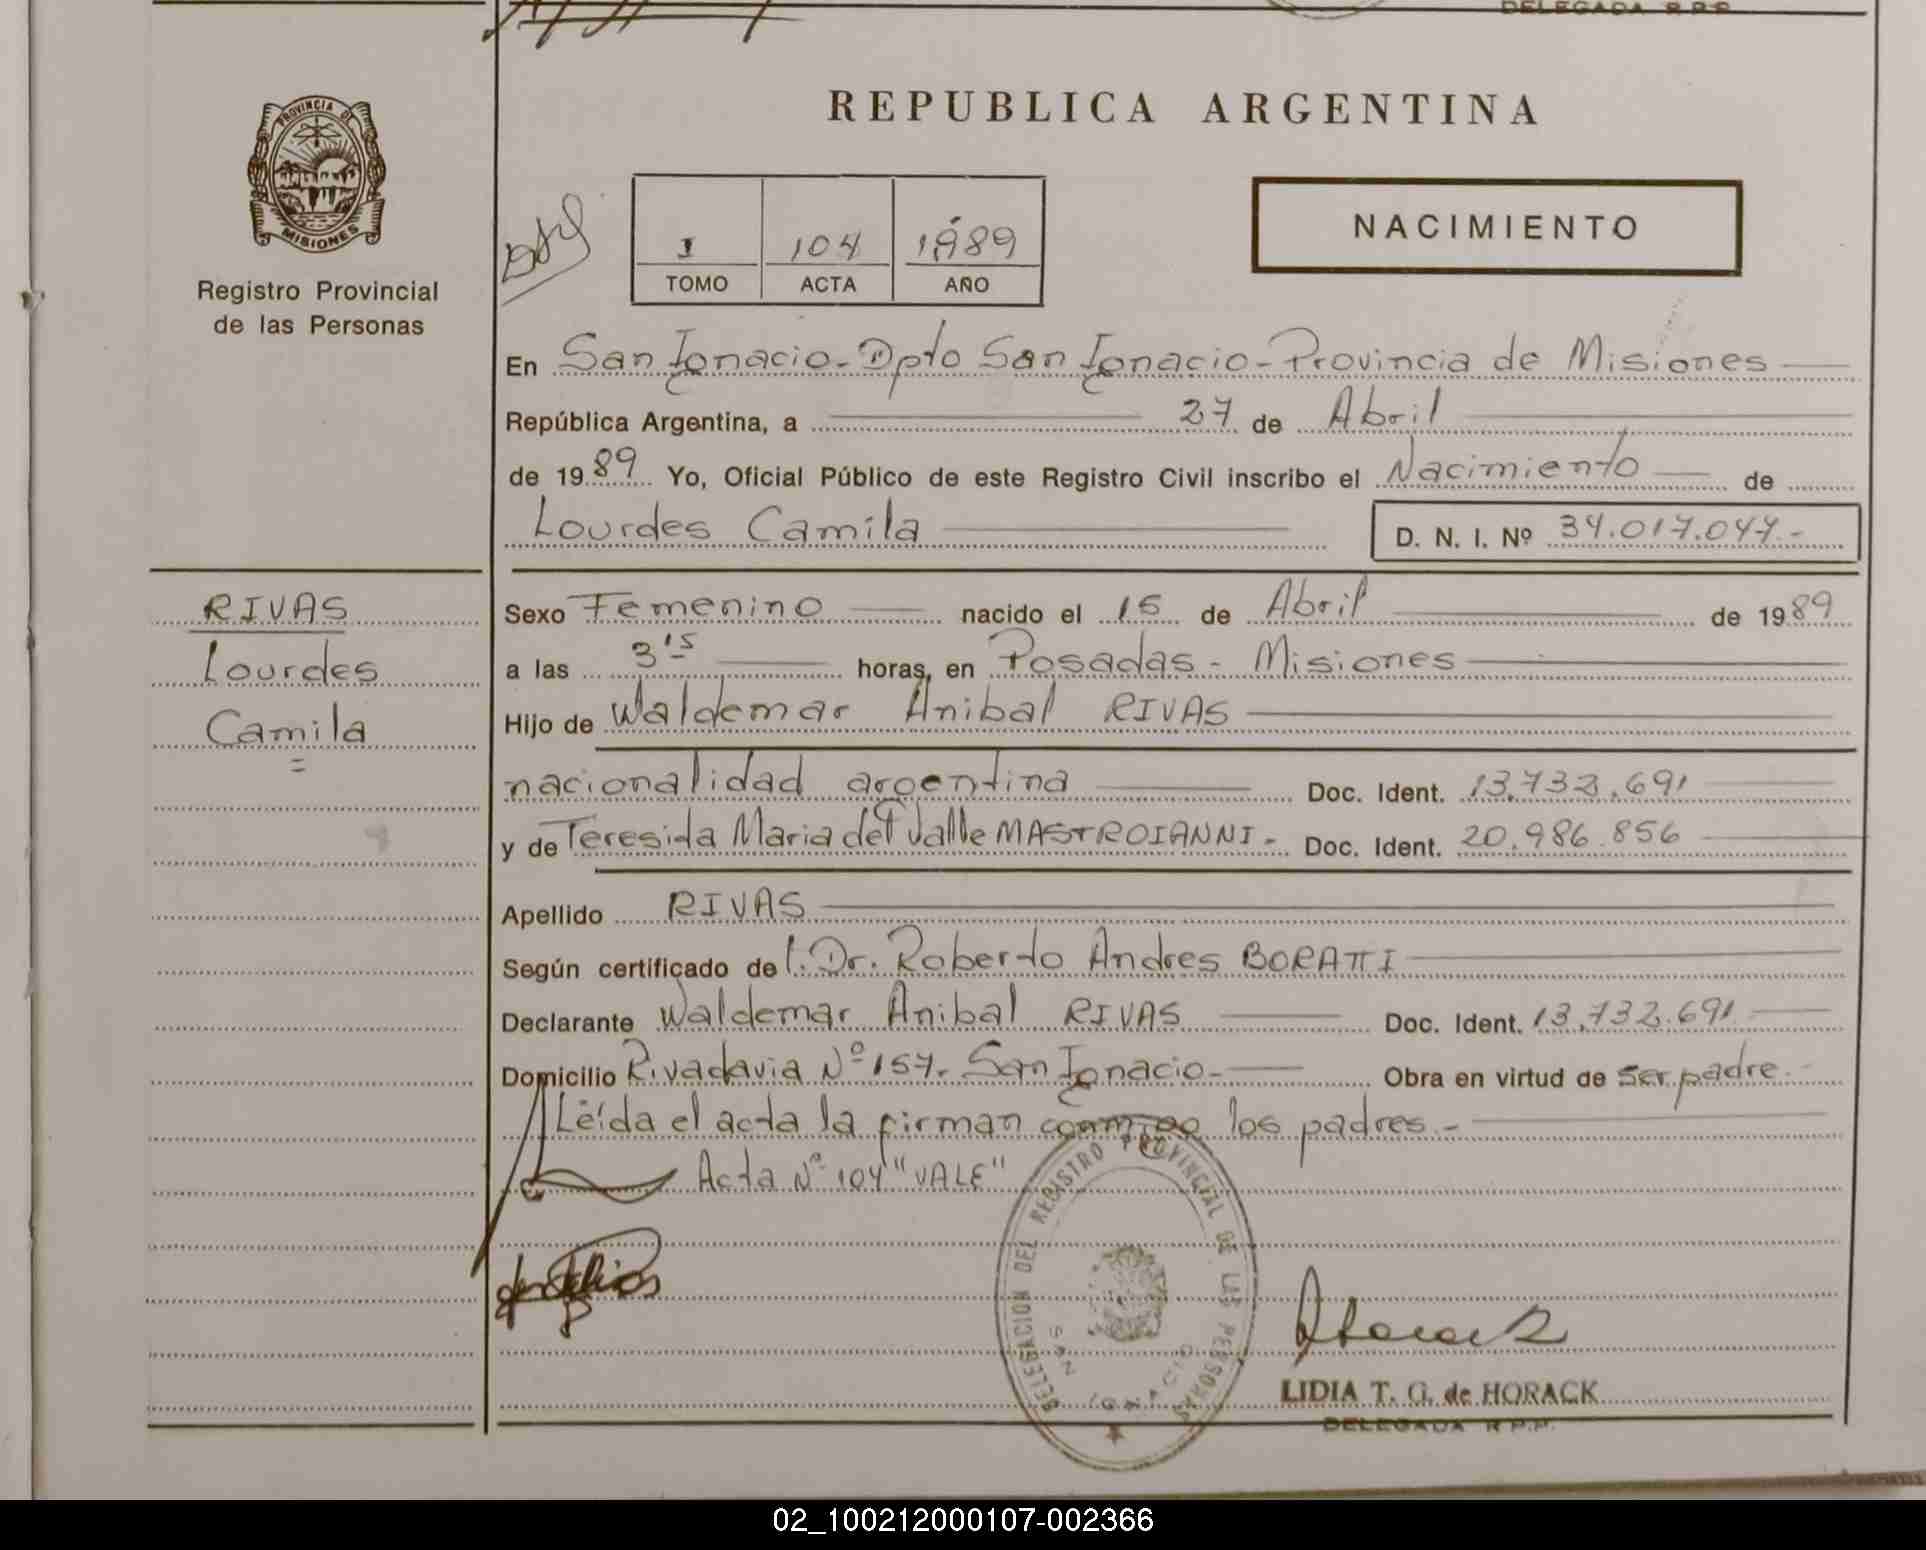 DELEGADA R.P.P.
PROVINCIA DE
MISIONES
Registro Provincial
de las Personas
REPUBLICA ARGENTINA
NACIMIENTO
I 104 1989
TOMO ACTA AÑO
En San Ignacio - Dpto San Ignacio - Provincia de Misiones
República Argentina, a 27 de Abril
de 1989 Yo, Oficial Público de este Registro Civil inscribo el Nacimiento de
Lourdes Camila D. N. I. Nº 34.017.047.-
RIVAS
Lourdes
Camila
=
Sexo Femenino nacido el 15 de Abril de 1989
a las 3 15 horas, en Posadas - Misiones
Hijo de Waldemar Anibal RIVAS
nacionalidad argentina Doc. Ident. 13.732.691
y de Teresita Maria del Valle MASTROIANNI - Doc. Ident. 20.986.856
Apellido RIVAS
Según certificado de l. Dr. Roberto Andres BORATTI
Declarante Waldemar Anibal RIVAS Doc. Ident. 13.732.691
Domicilio Rivadavia Nº 157. San Ignacio - Obra en virtud de ser padre.-
Leída el acta la firman conmigo los padres.-
Acta Nº 104 "VALE"
DELEGACION DEL REGISTRO PROVINCIAL DE LAS PERSONAS
SAN IGNACIO
LIDIA T. G. de HORACK
DELEGADA R.P.P.
02_100212000107-002366